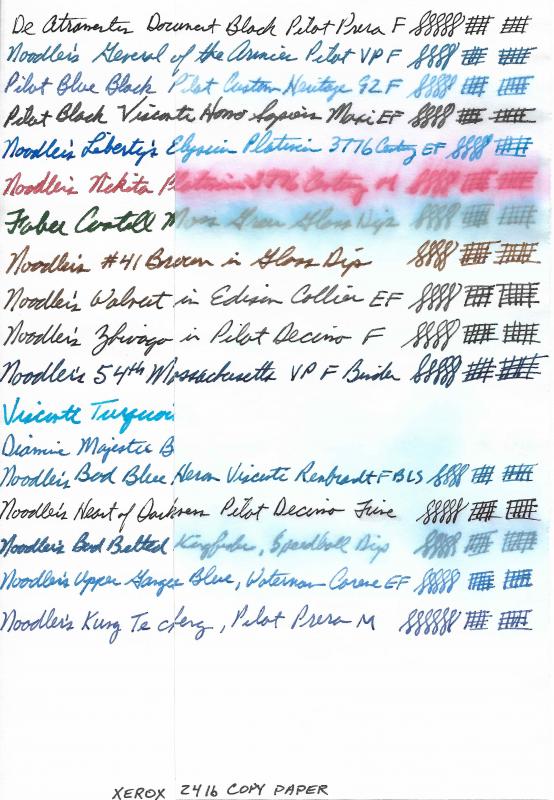 De Atramentis Document Black Pilot Prera F
Noodler's General of the Armies Pilot VP F
Pilot Blue Black Pilot Custom Heritage 92 F
Pilot Black Visconti Homo Sapiens Maxi EF
Noodler's Liberty's Elysium Platinum 3776 Century EF
Noodler's Nikita Platinum 3776 Century M
Faber Castell Moss Green Glass Dip
Noodler's #41 Brown in Glass Dip
Noodler's Walnut in Edison Collier EF
Noodler's Zhivago in Pilot Decimo F
Noodler's 54th Massachusetts VP F Binder
Visconti Turquoi
Diamine Majestic B
Noodler's Bad Blue Heron Visconti Rembrandt F BLS
Noodler's Heart of Darkness Pilot Decimo Fine
Noodler's Bad Belted Kingfisher, Speedball Dip
Noodler's Upper Ganges Blue, Waterman Carene EF
Noodler's Kung Te cheng, Pilot Prera M
XEROX 24 lb COPY PAPER